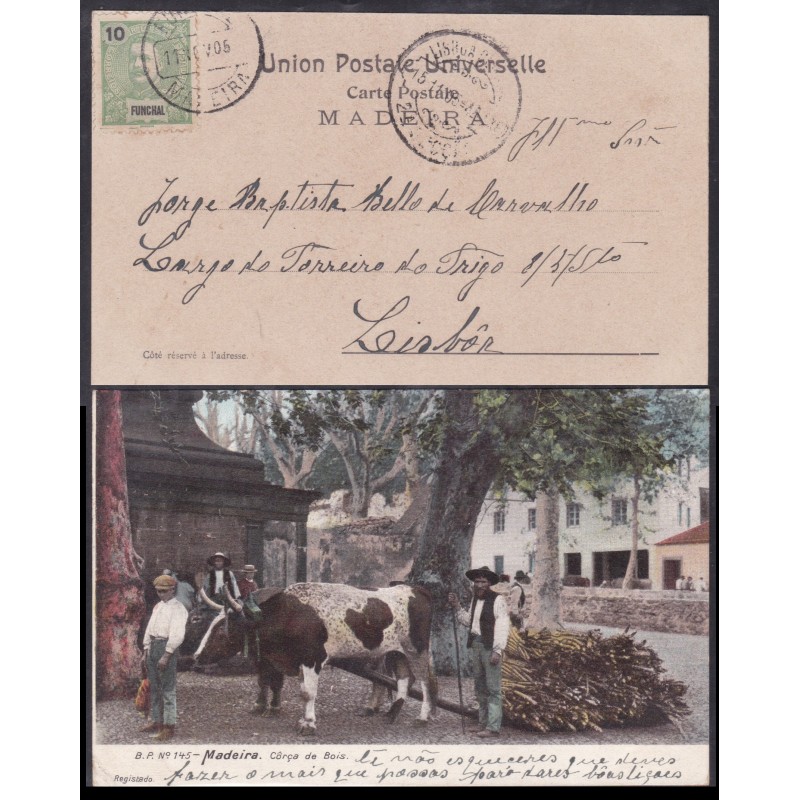 10
FUNCHAL
11 NOV 05
MADEIRA
LISBOA
Union Postale Universelle
Carte Postale
MADEIRA
Illmo Snr
Jorge Baptista Bello de Carvalho
Largo do Terreiro do Trigo 8/3/5to
Lisbôa
Côté réservé à l'adresse.
B. P. Nº 145 – Madeira. Côrça de Bois.
Registado
Vê não esqueceres que deves
fazer o mais que possas para dares bôas liçoes